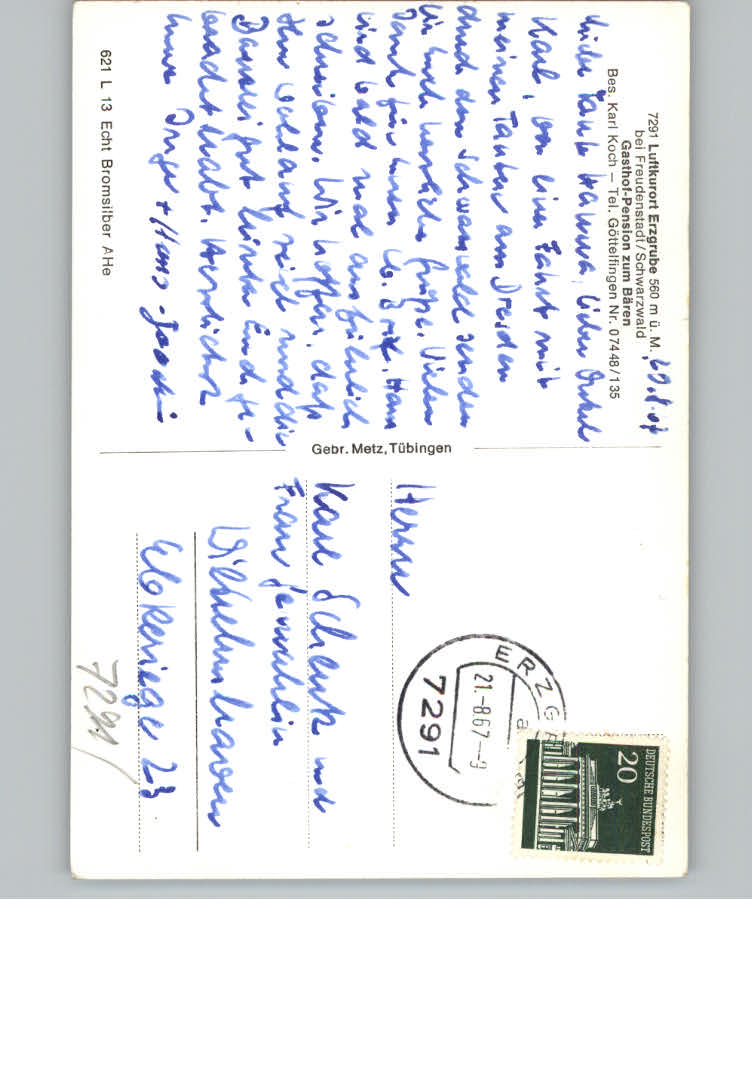 7291 Luftkurort Erzgrube 560 m ü. M.
bei Freudenstadt/Schwarzwald
Gasthof-Pension zum Bären
Bes. Karl Koch – Tel. Göttelfingen Nr. 07448/135
Liebe Tante Hanna, lieber Onkel
Karl, von einer Fahrt mit
meinen Tanten aus Dresden
durch den Schwarzwald senden
wir Euch herzliche Grüße. Vielen
Dank für Euren Brief. Hans
wird bald mal ausführlich
schreiben. Wir hoffen, daß
Ihr
gut hinter Euch ge-
bracht habt. Herzlichst
Eure Inge + Hans-Joachim
621 L 13 Echt Bromsilber AHe
Gebr. Metz, Tübingen
Herrn
Karl Schenk und
Frau Gemahlin
Wilhelmshaven
23
7291
ERZGR
21.-8.67-9
a
7291
DEUTSCHE BUNDESPOST
20